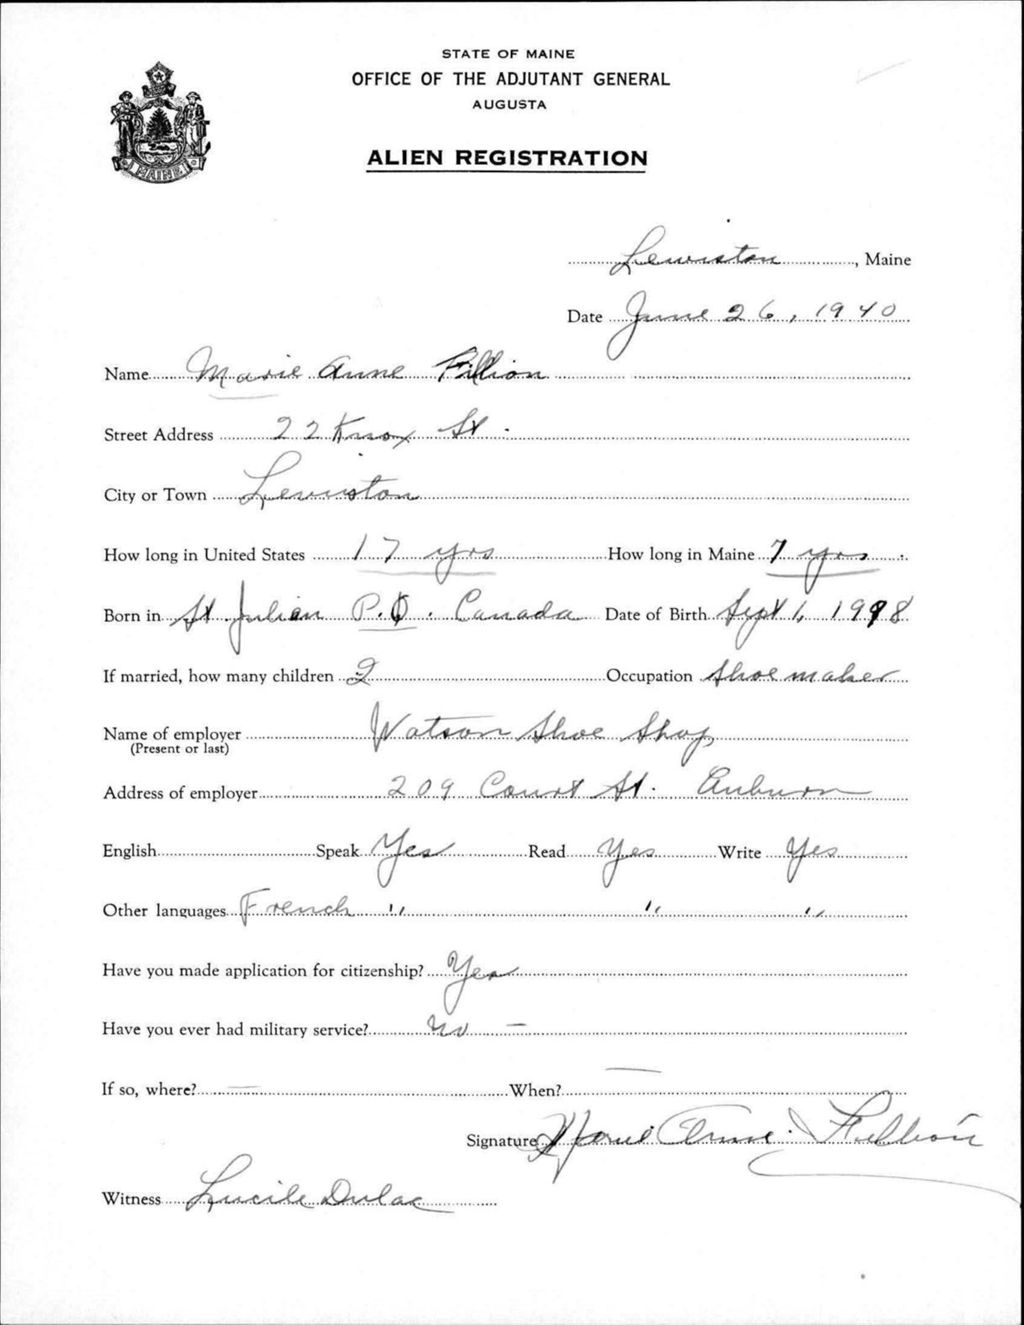 STATE OF MAINE
OFFICE OF THE ADJUTANT GENERAL
AUGUSTA
ALIEN REGISTRATION
MAINE
Lewiston, Maine
Date June 26, 1940
Name Marie Anne Fillion
Street Address 22 Knox St.
City or Town Lewiston
How long in United States 17 yrs How long in Maine 7 yrs
Born in St Julien P.Q. Canada Date of Birth Sept 1,
If married, how many children 2 Occupation Shoemaker
Name of employer Watson Shoe Shop
(Present or last)
Address of employer 209 Court St. Auburn
English Speak Yes Read Yes Write Yes
Other languages French " " "
Have you made application for citizenship? Yes
Have you ever had military service? No —
If so, where? — When? —
Signature Marie Anne Fillion
Witness Lucile Dulac